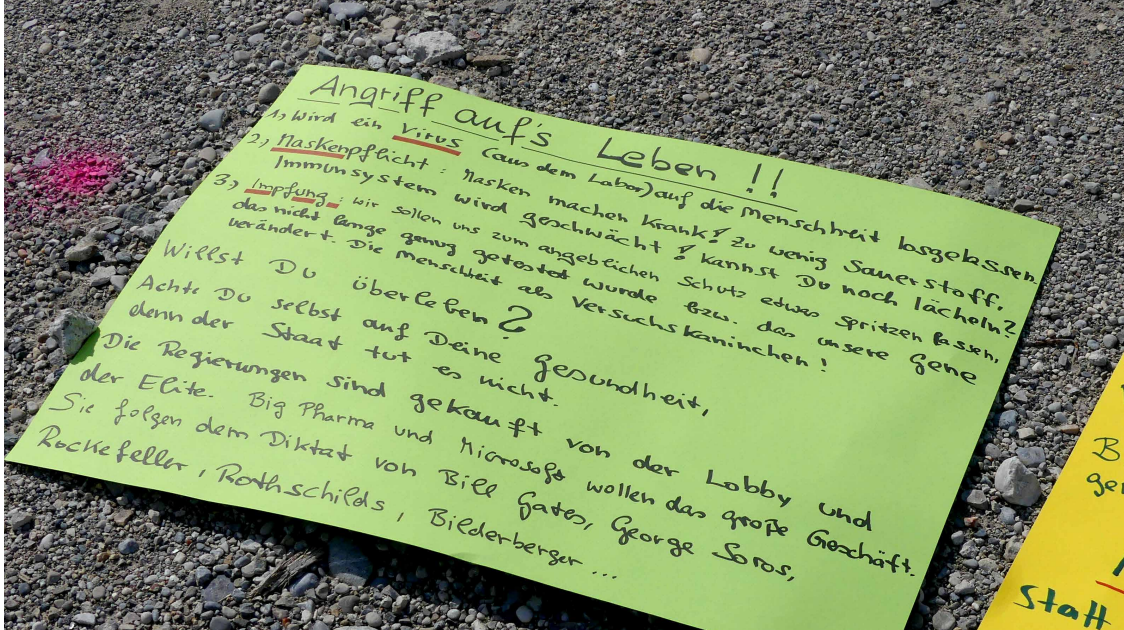 Angriff auf's Leben !!
1.) Wird ein Virus (aus dem Labor) auf die Menschheit losgelassen.
2.) Maskenpflicht: Masken machen krank! Zu wenig Sauerstoff,
Immunsystem wird geschwächt! Kannst Du noch lächeln?
3.) Impfung: Wir sollen uns zum angeblichen Schutz etwas spritzen lassen,
das nicht lange genug getestet wurde bzw. das unsere Gene
verändert. Die Menschheit als Versuchskaninchen!
Willst Du überleben?
Achte Du selbst auf Deine Gesundheit,
denn der Staat tut es nicht.
Die Regierungen sind gekauft von der Lobby und
der Elite. Big Pharma und Microsoft wollen das große Geschäft.
Sie folgen dem Diktat von Bill Gates, George Soros,
Rockefeller, Rothschilds, Bilderberger ...
B
ger
Statt